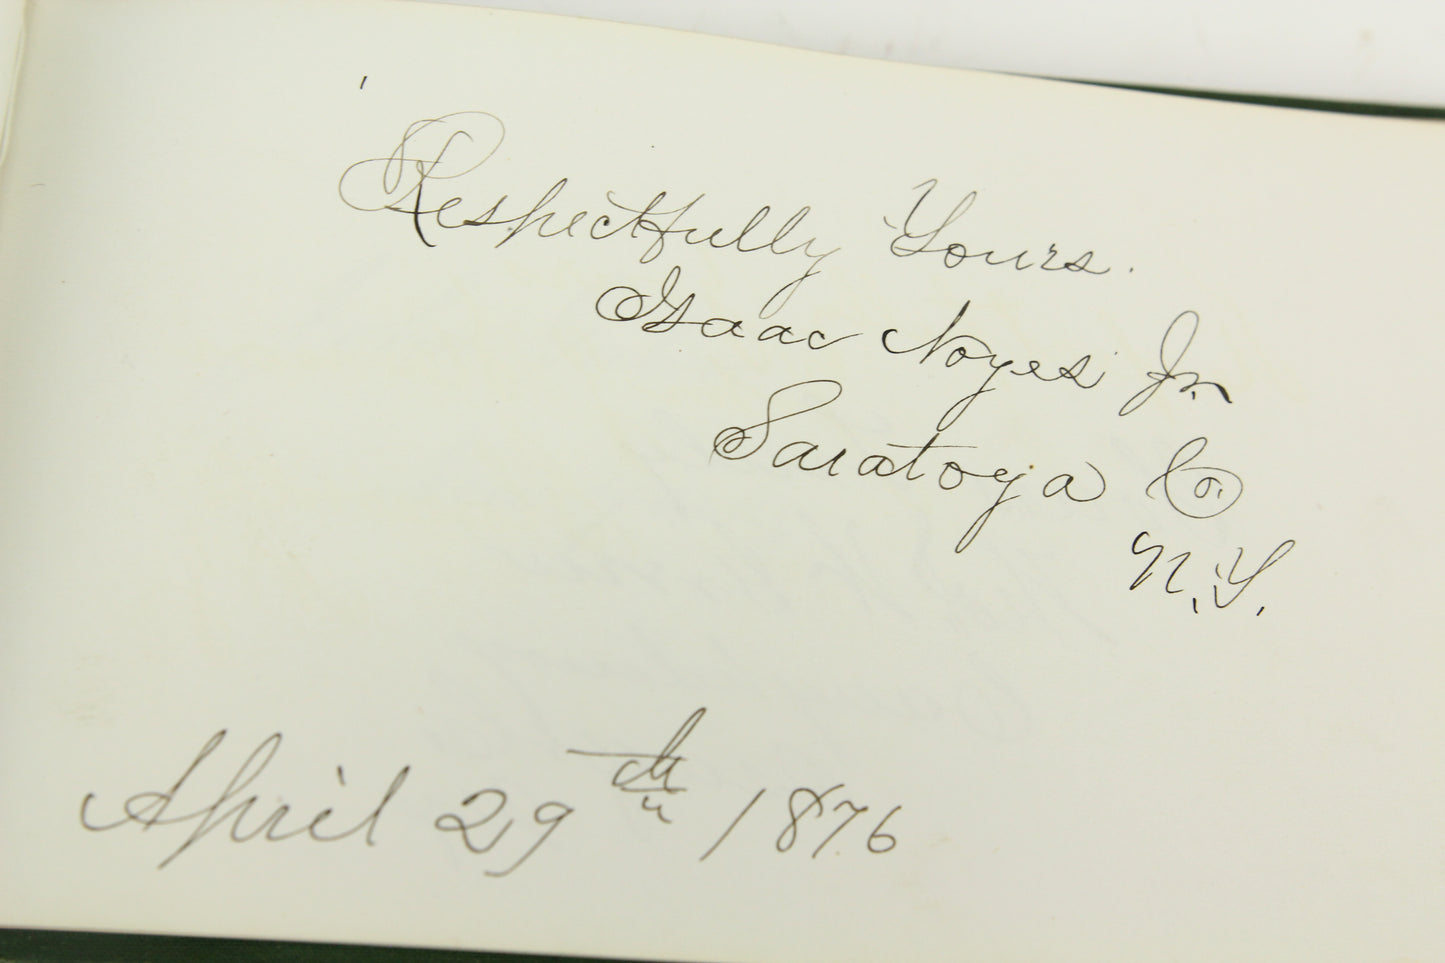 Respectfully Yours.
Isaac Noyes Jr.
Saratoga Co.
N.Y.
April 29th 1876